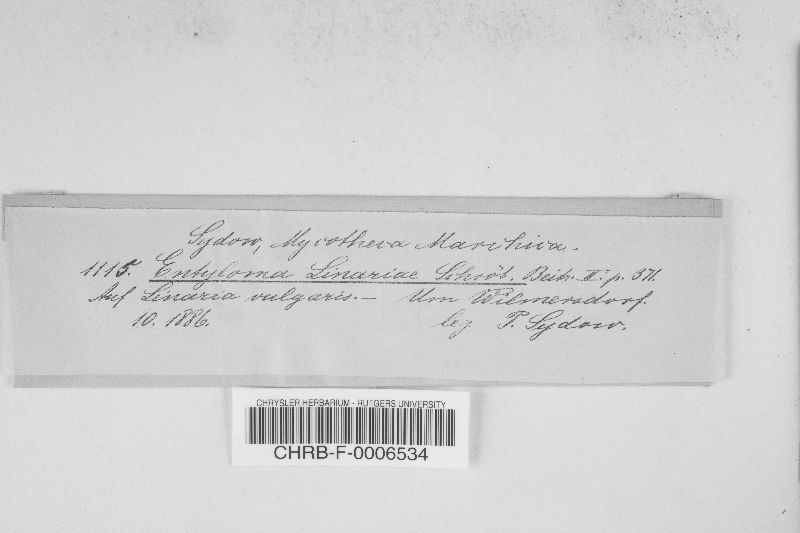 Sydow, Mycotheca Marchica.
1115. Entyloma Linariae Schröt. Beitr. II. p. 371.
Auf Linaria vulgaris. — Um Wilmersdorf.
10. 1886. leg. P. Sydow.
CHRYSLER HERBARIUM - RUTGERS UNIVERSITY
CHRB-F-0006534